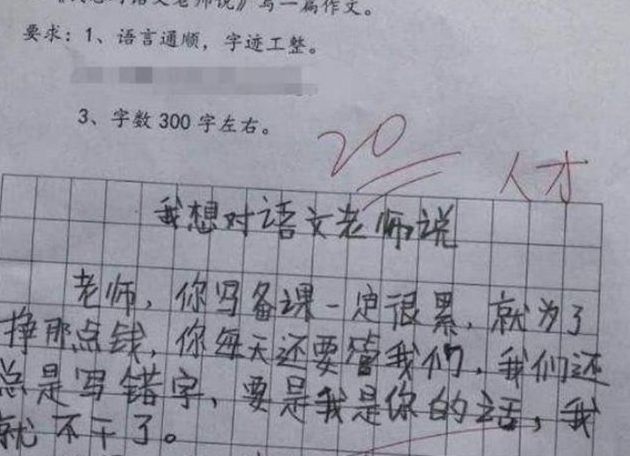 《我想对语文老师说》写一篇作文。
要求：1、语言通顺，字迹工整。
3、字数 300 字左右。
20
人才
我想对语文老师说
老师，你写备课一定很累，就为了
挣那点钱，你每天还要管我们，我们还
总是写错字，要是我是你的话，我
就不干了。